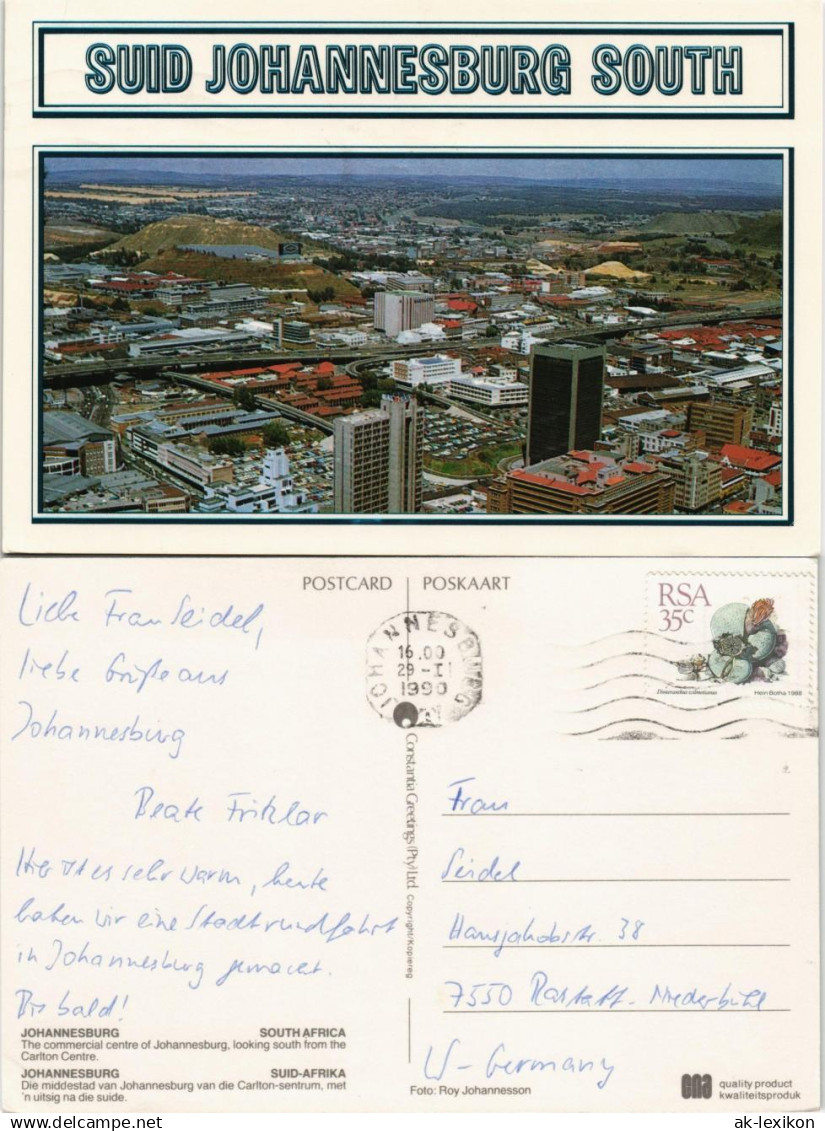 SUID JOHANNESBURG SOUTH
POSTCARD POSKAART
Liebe Frau Seidel,
liebe Grüße aus
Johannesburg
Beate Fritzlar
Hier ist es sehr warm, heute
haben wir eine Stadtrundfahrt
in Johannesburg gemacht.
Bis bald!
JOHANNESBURG SOUTH AFRICA
The commercial centre of Johannesburg, looking south from the
Carlton Centre.
JOHANNESBURG SUID-AFRIKA
Die middestad van Johannesburg van die Carlton-sentrum, met
'n uitsig na die suide.
Constantia Greetings (Pty) Ltd. Copyright/Kopiereg
JOHANNESBURG
16.00
29 -I
1990
RSA
35c
Hein Botha 1988
Frau
Seidel
Hansjakobstr. 38
7550 Rastatt-Niederbühl
W-Germany
Foto: Roy Johannesson
cna quality product
kwaliteitsproduk
ak-lexikon